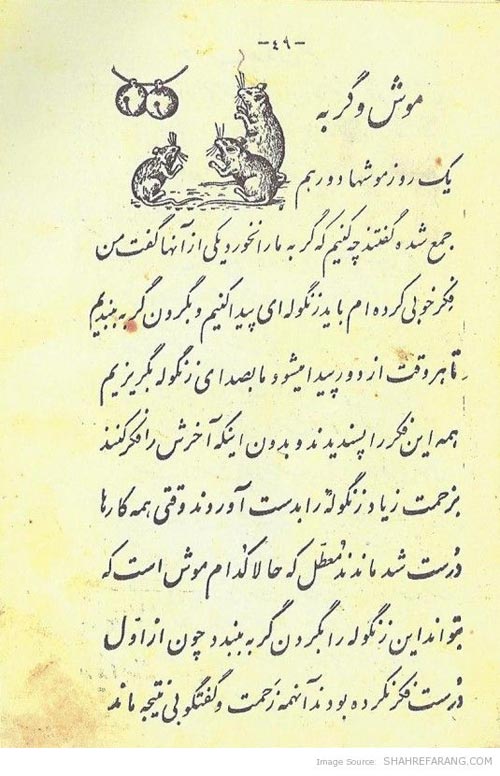 -٤٩-
موش و گربه
یک روز موشها دور هم
جمع شده گفتند چه کنیم که گربه ما را نخورد یکی از آنها گفت من
فکر خوبی کرده‌ام باید زنگوله‌ای پیدا کنیم و بگردن گربه ببندیم
تا هر وقت از دور پیدا میشود ما بصدای زنگوله بگریزیم
همه این فکر را پسندیدند و بدون اینکه آخرش را فکر کنند
بزحمت زیاد زنگوله را بدست آوردند وقتی همه کارها
دُرست شد ماندند مُعطّل که حالا کُدام موش است که
بتواند این زنگوله را بگردن گربه ببندد چون از اوّل
دُرست فکر نکرده بودند آنهمه زَحمت و گفتگو بی نتیجه ماند
Image Source: SHAHREFARANG.COM